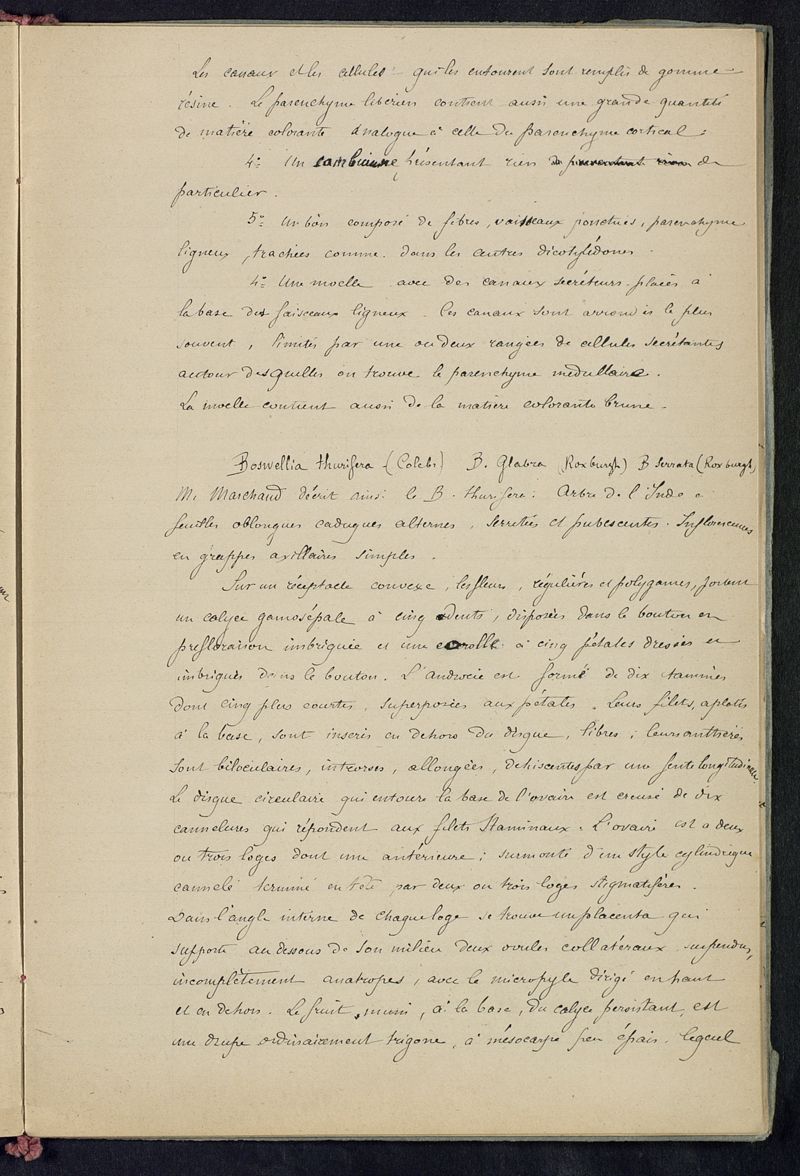 Les canaux et les cellules qui les entourent sont remplis de gomme-
résine. Le parenchyme libérien contient aussi une grande quantité
de matière colorante analogue à celle du parenchyme cortical ;
4º Un cambium présentant rien de
particulier.
5º Un bois composé de fibres, vaisseaux ponctués, parenchyme
ligneux, trachées comme dans les autres dicotylédones.
4º Une moelle avec des canaux secréteurs placés à
la base des faisceaux ligneux. Ces canaux sont arrondis le plus
souvent, limités par une ou deux rangées de cellules secrétantes
autour desquelles on trouve le parenchyme médullaire.
La moelle contient aussi de la matière colorante brune.
Boswellia thurifera (Colebr) B. Glabra (Roxburgh) B Serrata (Roxburgh)
Mr Marchand décrit ainsi le B. thurifera : Arbre de l'Inde à
feuilles oblongues caduques alternes, serretées et pubescentes. Inflorescences
en grappes axillaires simples.
Sur un réceptacle convexe, les fleurs, régulières et polygames, portent
un calyce gamosépale à cinq dents, disposées dans le bouton en
préfloraison imbriquée et une corolle à cinq pétales dressés et
imbriqués dans le bouton. L'androcée est formé de dix étamines
dont cinq plus courtes, superposées aux pétales. Leurs filets, aplatis
à la base, sont inserés en dehors du disque, libres ; leurs anthères
sont biloculaires, introrses, allongées, déhiscentes par une fente longitudinale.
Le disque circulaire qui entoure la base de l'ovaire est creusé de dix
cannelures qui répondent aux filets staminaux. L'ovaire est a deux
ou trois loges dont une antérieure ; surmonté d'un style cylindrique
cannelé terminé en tête par deux ou trois loges stigmatifères.
Dans l'angle interne de chaque loge se trouve un placenta qui
supporte au dessous de son milieu deux ovules collatéraux suspendus,
incomplètement anatropes, avec le micropyle dirigé en haut
et en dehors. Le fruit, muni, à la base, du calyce persistant, est
une drupe ordinairement trigone, à mésocarpe peu épais, lequel